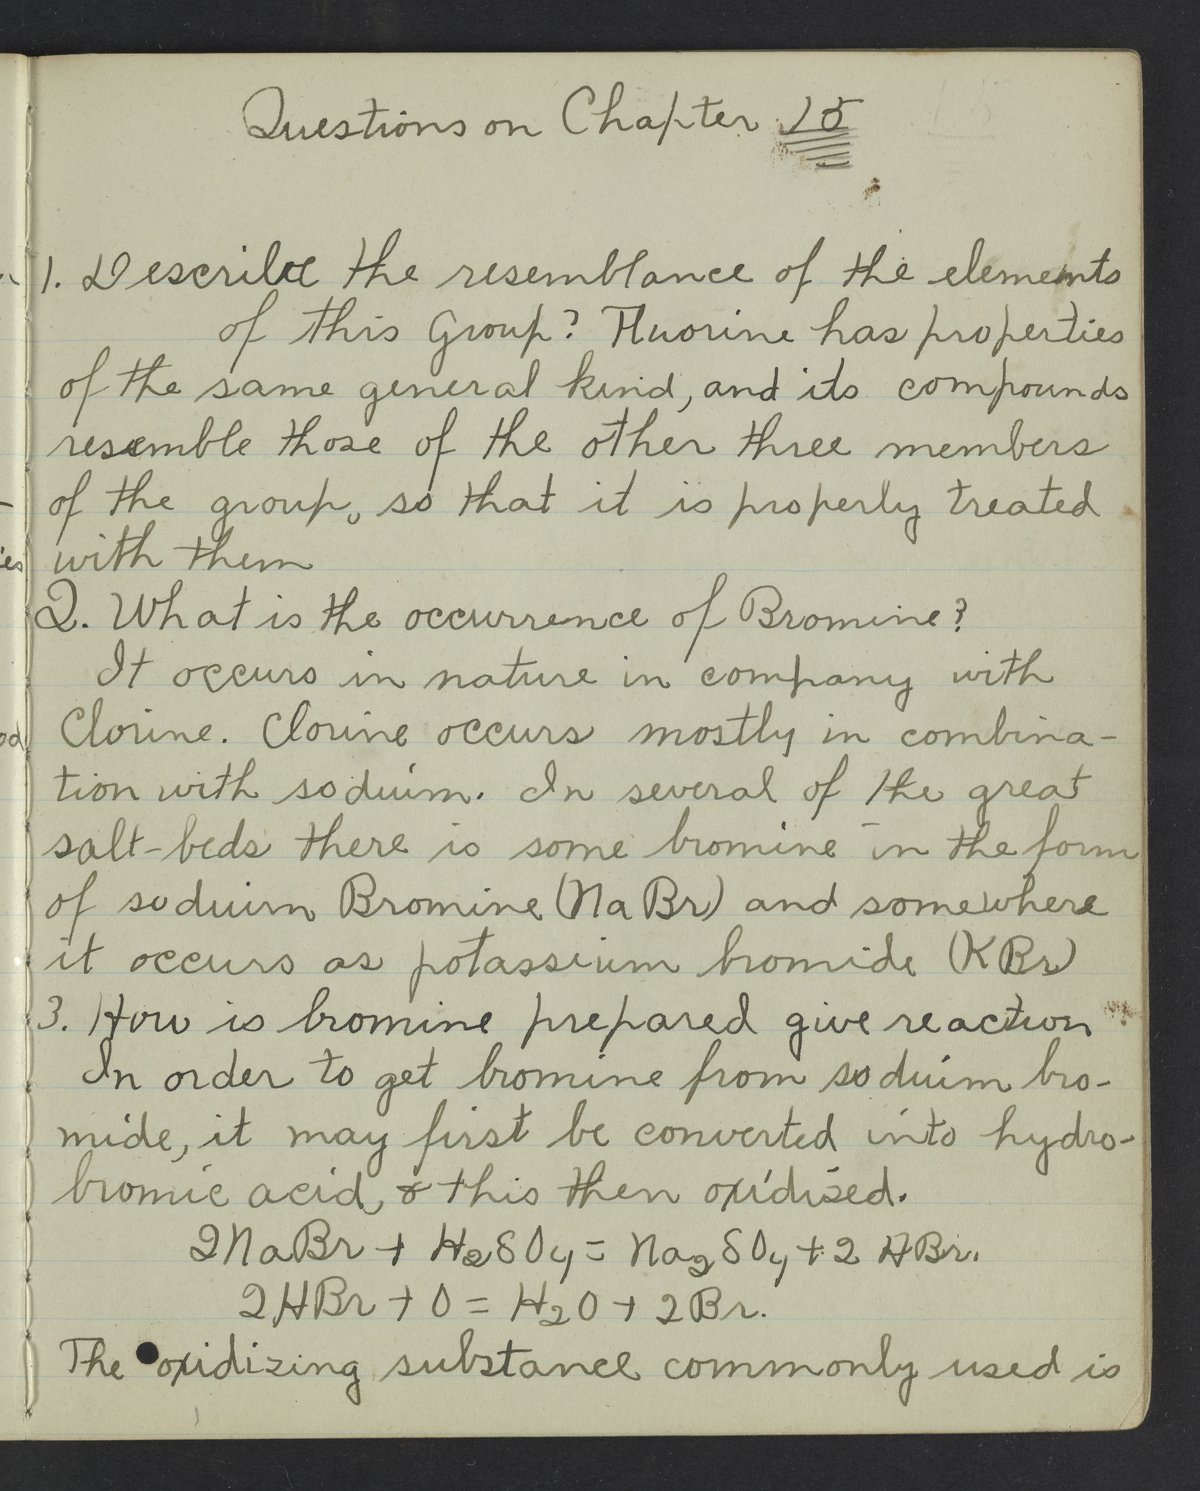 Questions on Chapter 15
1. Describe the resemblance of the elements
of this Group? Fluorine has properties
of the same general kind, and its compounds
resemble those of the other three members
of the group, so that it is properly treated
with them
2. What is the occurrence of Bromine?
It occurs in nature in company with
Clorine. Clorine occurs mostly in combina-
tion with soduim. In several of the great
salt-beds there is some bromine in the form
of soduim Bromine (NaBr) and somewhere
it occurs as potassium bromide (KBr)
3. How is bromine prepared give reaction
In order to get bromine from soduim bro-
mide, it may first be converted into hydro-
bromic acid, & this then oxidised.
2NaBr + H₂SO₄ = Na₂SO₄ + 2 HBr.
2HBr + O = H₂O + 2Br.
The oxidizing substance commonly used is
ies
od